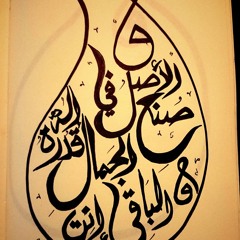 و
الأصل في
صنع
الجمال قدرة الله
و الباقي
إنت